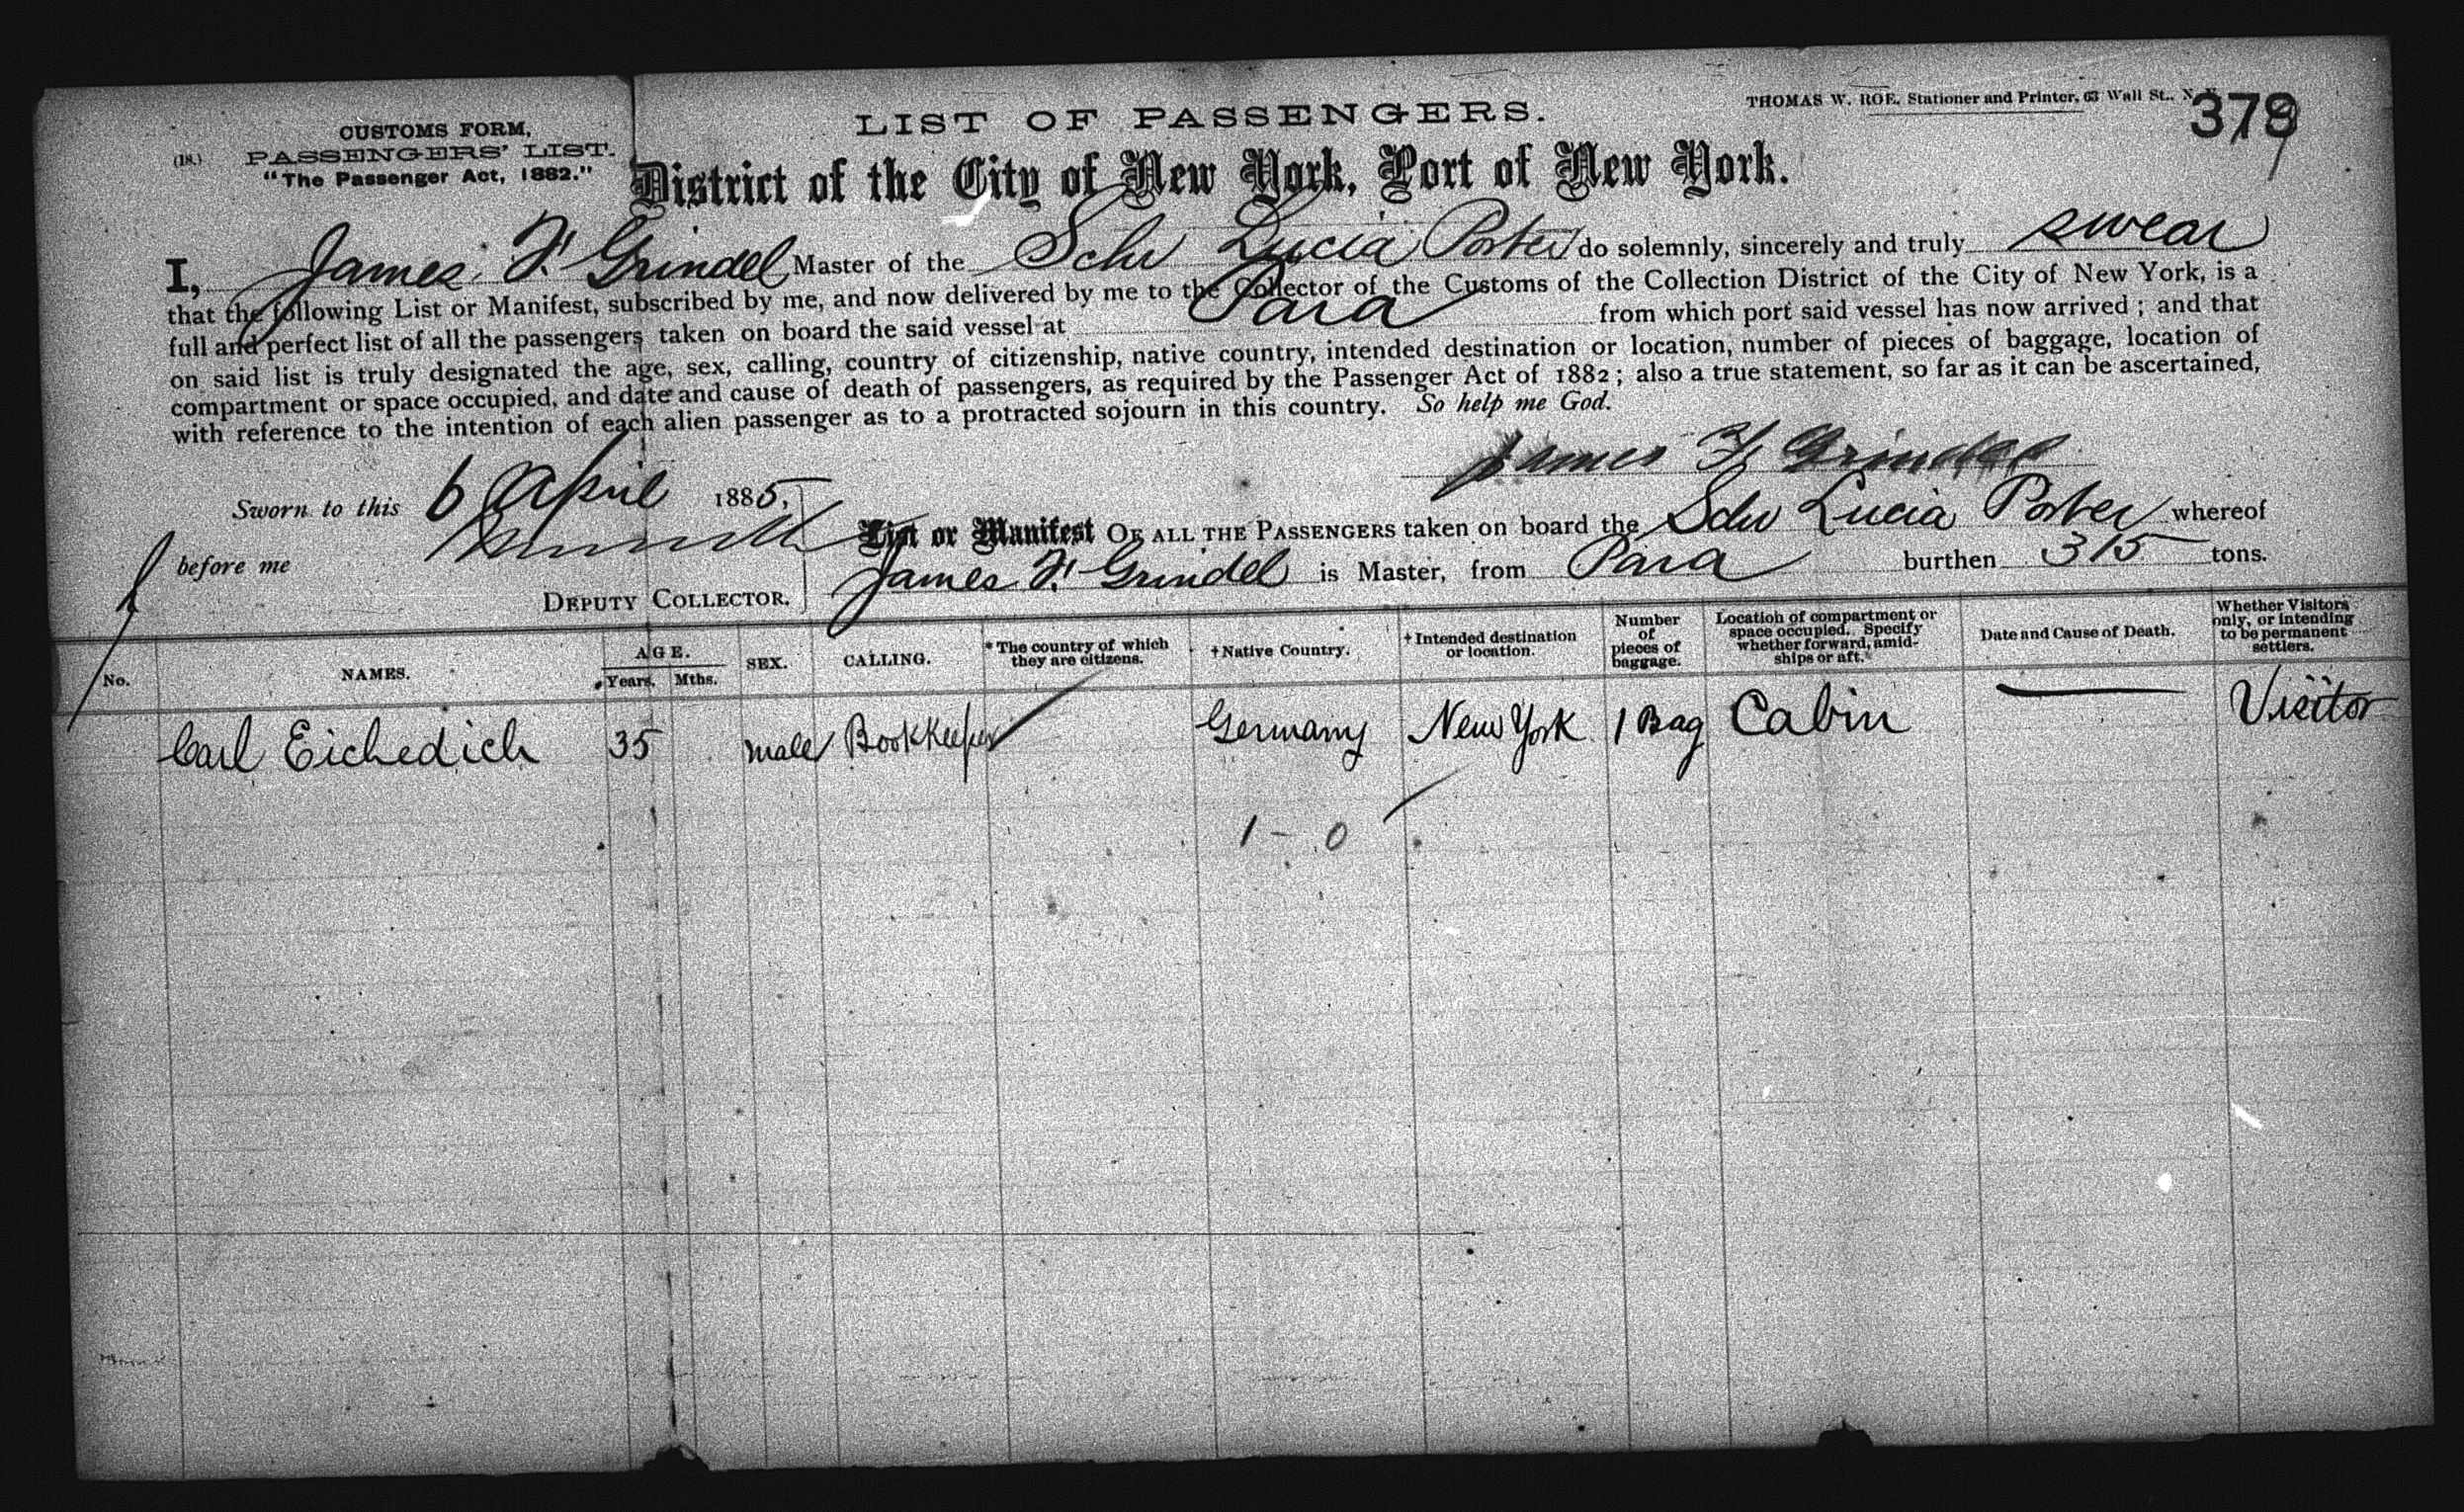 THOMAS W. ROE, Stationer and Printer, 63 Wall St., N. Y.
LIST OF PASSENGERS.
CUSTOMS FORM,
(18.) PASSENGERS' LIST.
"The Passenger Act, 1882."
District of the City of New York, Port of New York.
I, James F. Grindel Master of the Schr Lucia Porter do solemnly, sincerely and truly swear
that the following List or Manifest, subscribed by me, and now delivered by me to the Collector of the Customs of the Collection District of the City of New York, is a
full and perfect list of all the passengers taken on board the said vessel at Para from which port said vessel has now arrived; and that
on said list is truly designated the age, sex, calling, country of citizenship, native country, intended destination or location, number of pieces of baggage, location of
compartment or space occupied, and date and cause of death of passengers, as required by the Passenger Act of 1882; also a true statement, so far as it can be ascertained,
with reference to the intention of each alien passenger as to a protracted sojourn in this country. So help me God.
James F. Grindel
Sworn to this 6 April 1885,
before me
DEPUTY COLLECTOR.
List or Manifest OF ALL THE PASSENGERS taken on board the Schr Lucia Porter whereof
James F. Grindel is Master, from Para burthen 315 tons.
No. NAMES. AGE. Years. Mths. SEX. CALLING. * The country of which they are citizens. †Native Country. †Intended destination or location. Number of pieces of baggage. Location of compartment or space occupied. Specify whether forward, amidships or aft. Date and Cause of Death. Whether Visitors only, or intending to be permanent settlers.
Carl Eichedich 35 male Bookkeeper Germany New York 1 Bag Cabin Visitor
1 - 0